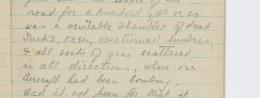 road for a hundred yds or so
was a veritable shambles of dead
Turks, oxen, overturned limbers,
& all sorts of gear scattered
in all directions, where our
Aircraft had been bombing.
Had it not been for that it